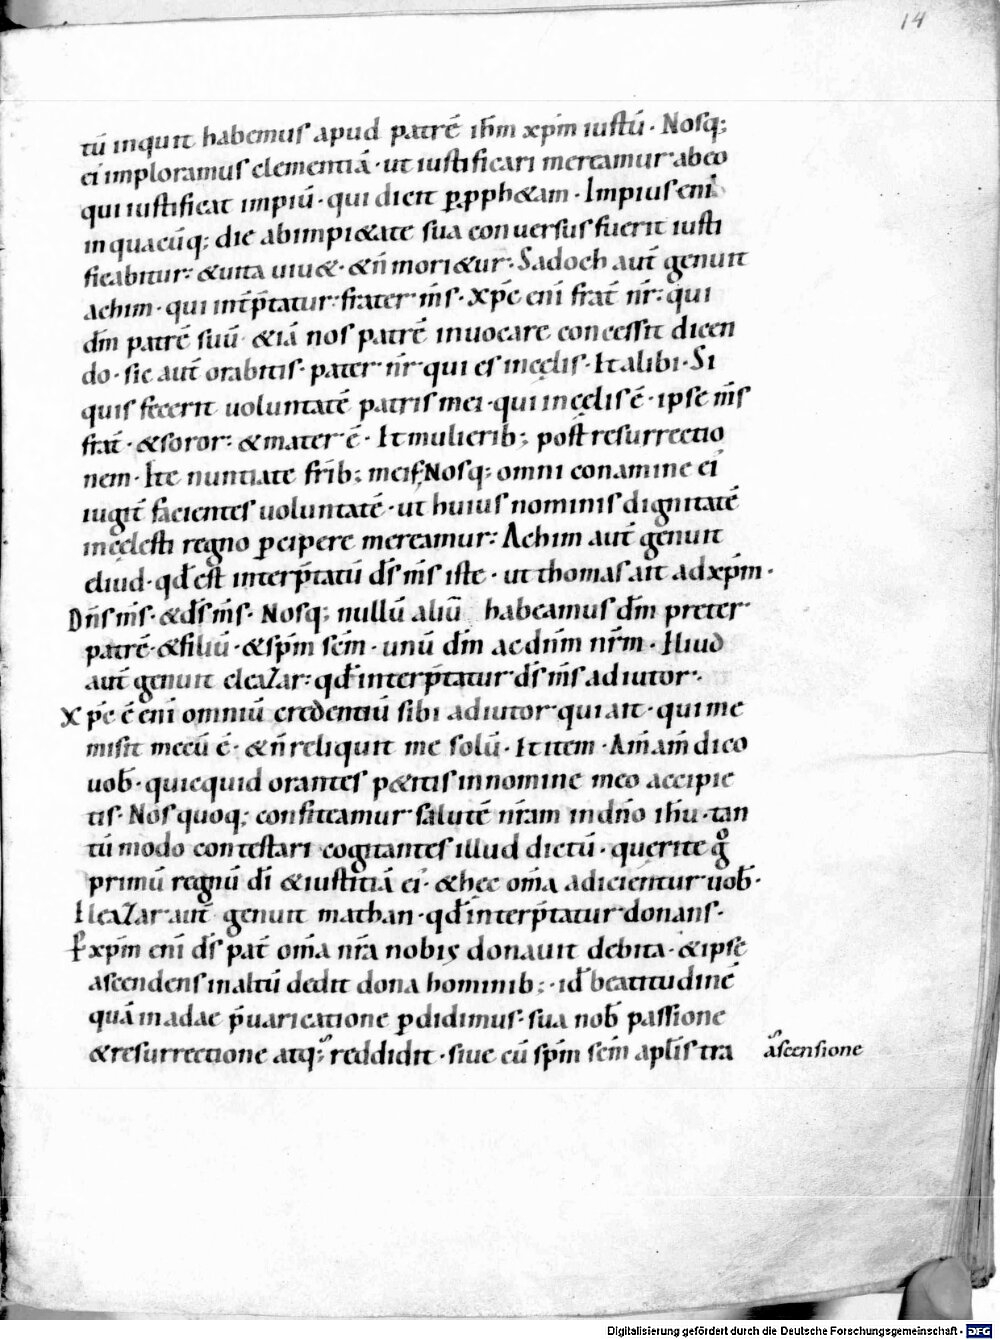 14
tū inquit habemus apud patrē ihm̄ xpm̄ iustū · Nosq;
ei imploramus clementiā · ut iustificari mereamur abeo
qui iustificat impiū · qui dicit p̱ pph&am · Impius eni
in quacūq; die abimpi&ate sua conuersus fuerit iusti
ficabitur: &uita uiu& · &n̄ mori&ur: Sadoch aut̄ genuit
achim · qui int̄p̄tatur: frater m̄s · Xp̄c eni frat̄ nr̄: qui
dm̄ patrē suū &iā nos patrē inuocare concessit dicen
do · sic aut̄ orabitis · pater nr̄ qui es incęlis · Et alibi · Si
quis fecerit uoluntatē patris mei · qui incęlis ē · ipse m̄s
frat̄ · &soror: &mater ē · Et mulierib; post resurrectio
nem · Ite nuntiate frīb; meis; Nosq; omni conamine ei
iugit̄ facientes uoluntatē · ut huius nominis dignitatē
incęlesti regno p̱cipere mereamur: Achim aut̄ genuit
eliud · qd̄ est interp̄tatū ds̄ m̄s iste · ut thomas ait adxpm̄ ·
Dn̄s m̄s · &ds̄ m̄s · Nosq; nullū aliū habeamus dm̄ preter
patrē · &filiū · &spm̄ scm̄ · unū dm̄ acdnm̄ nr̄m · Eliud
aut̄ genuit eleazar: qd̄ interp̄tatur ds̄ m̄s adiutor ·
Xp̄c ē eni omniū credentiū sibi adiutor qui ait · qui me
misit mecū ē · &n̄ reliquit me solū · Et item · Am̄ am̄ dico
uob̄ · quicquid orantes p&itis innomine meo accipie
tis · Nos quoq; confiteamur salutē nr̄am indn̄o ihū · tan
tū modo contestari cogitantes illud dictū · querite g̊
primū regnū dī &iustitiā ei · &hęc om̄a adicientur uob̄ ·
Eleazar aut̄ genuit mathan · qd̄ interp̄tatur donans ·
P̱ xpm̄ eni ds̄ pat̄ om̄a nr̄a nobis donauit debita · &ipse
ascendens inaltū dedit dona hominib; · id̄ beatitudinē
quā inadae p̄uaricatione p̱didimus · sua nob̄ passione
&resurrectione atq; reddidit · siue cū spm̄ scm̄ aplīs tra
ascensione
Digitalisierung gefördert durch die Deutsche Forschungsgemeinschaft - DFG